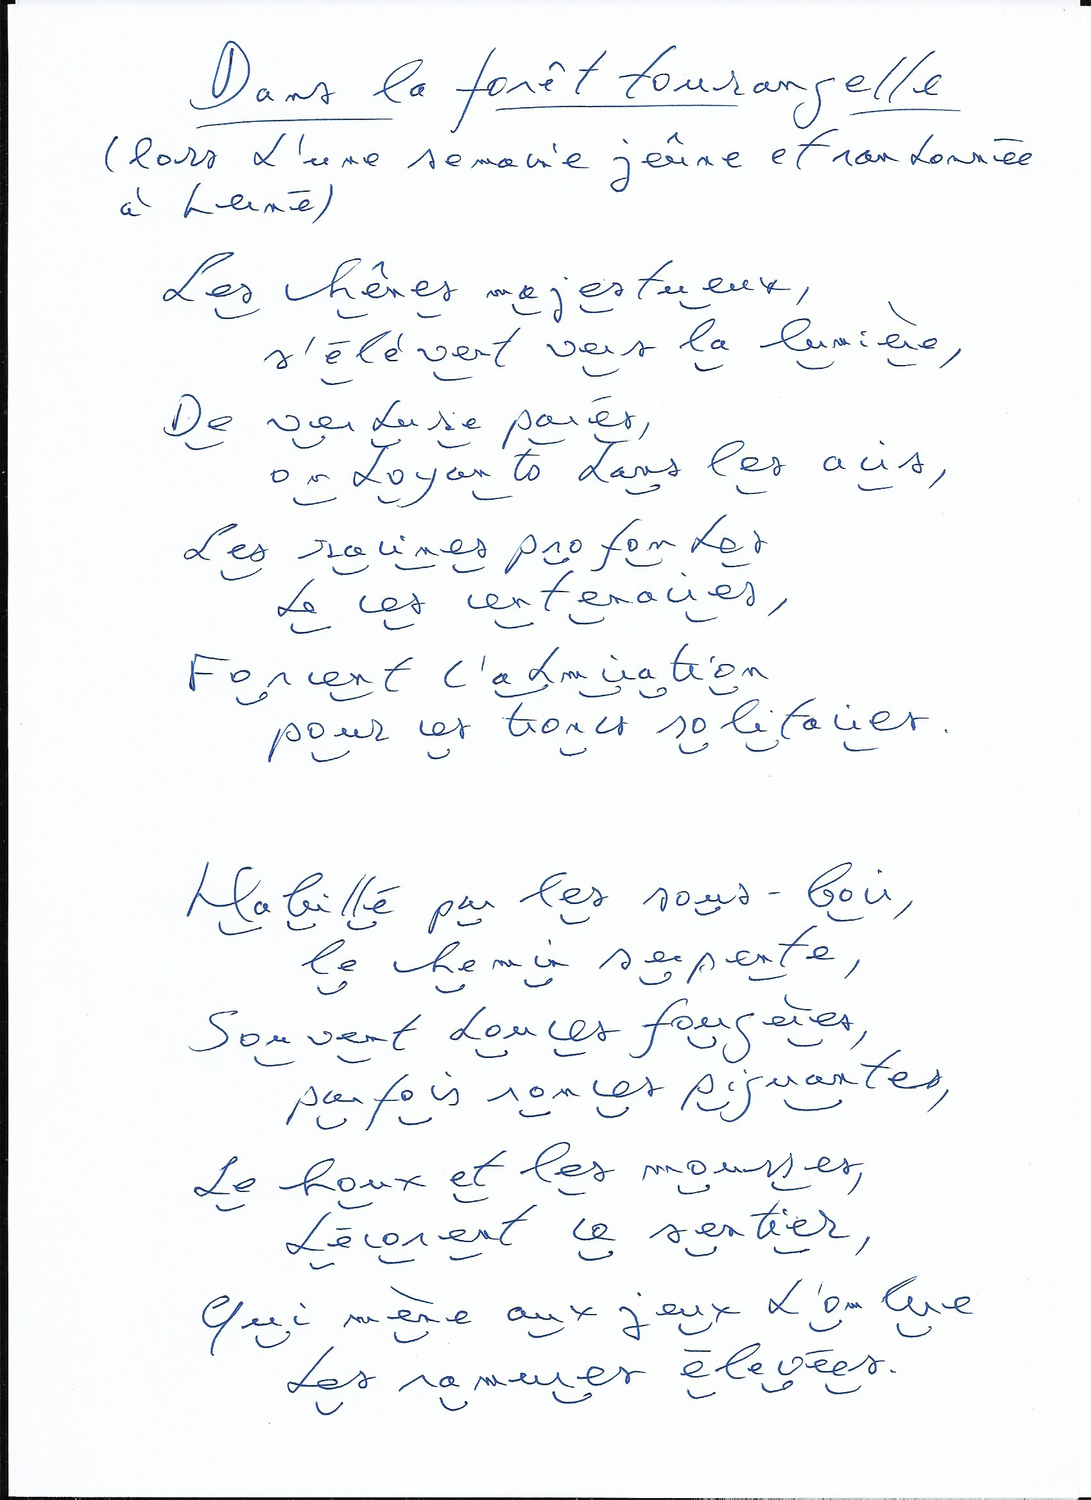 Dans la forêt tourangelle
(lors d'une semaine jeûne et randonnée
à Lerné)
Les chênes majestueux,
s'élèvent vers la lumière,
De verdure parés,
ondoyants dans les airs,
Les racines profondes
de ces centenaires,
Forcent l'admiration
pour ces troncs solitaires.
Habillé par les sous-bois,
le chemin serpente,
Souvent douces fougères,
parfois ronces piquantes,
Le houx et les mousses,
décorent ce sentier,
Qui mène aux jeux d'ombre
des ramures élevées.